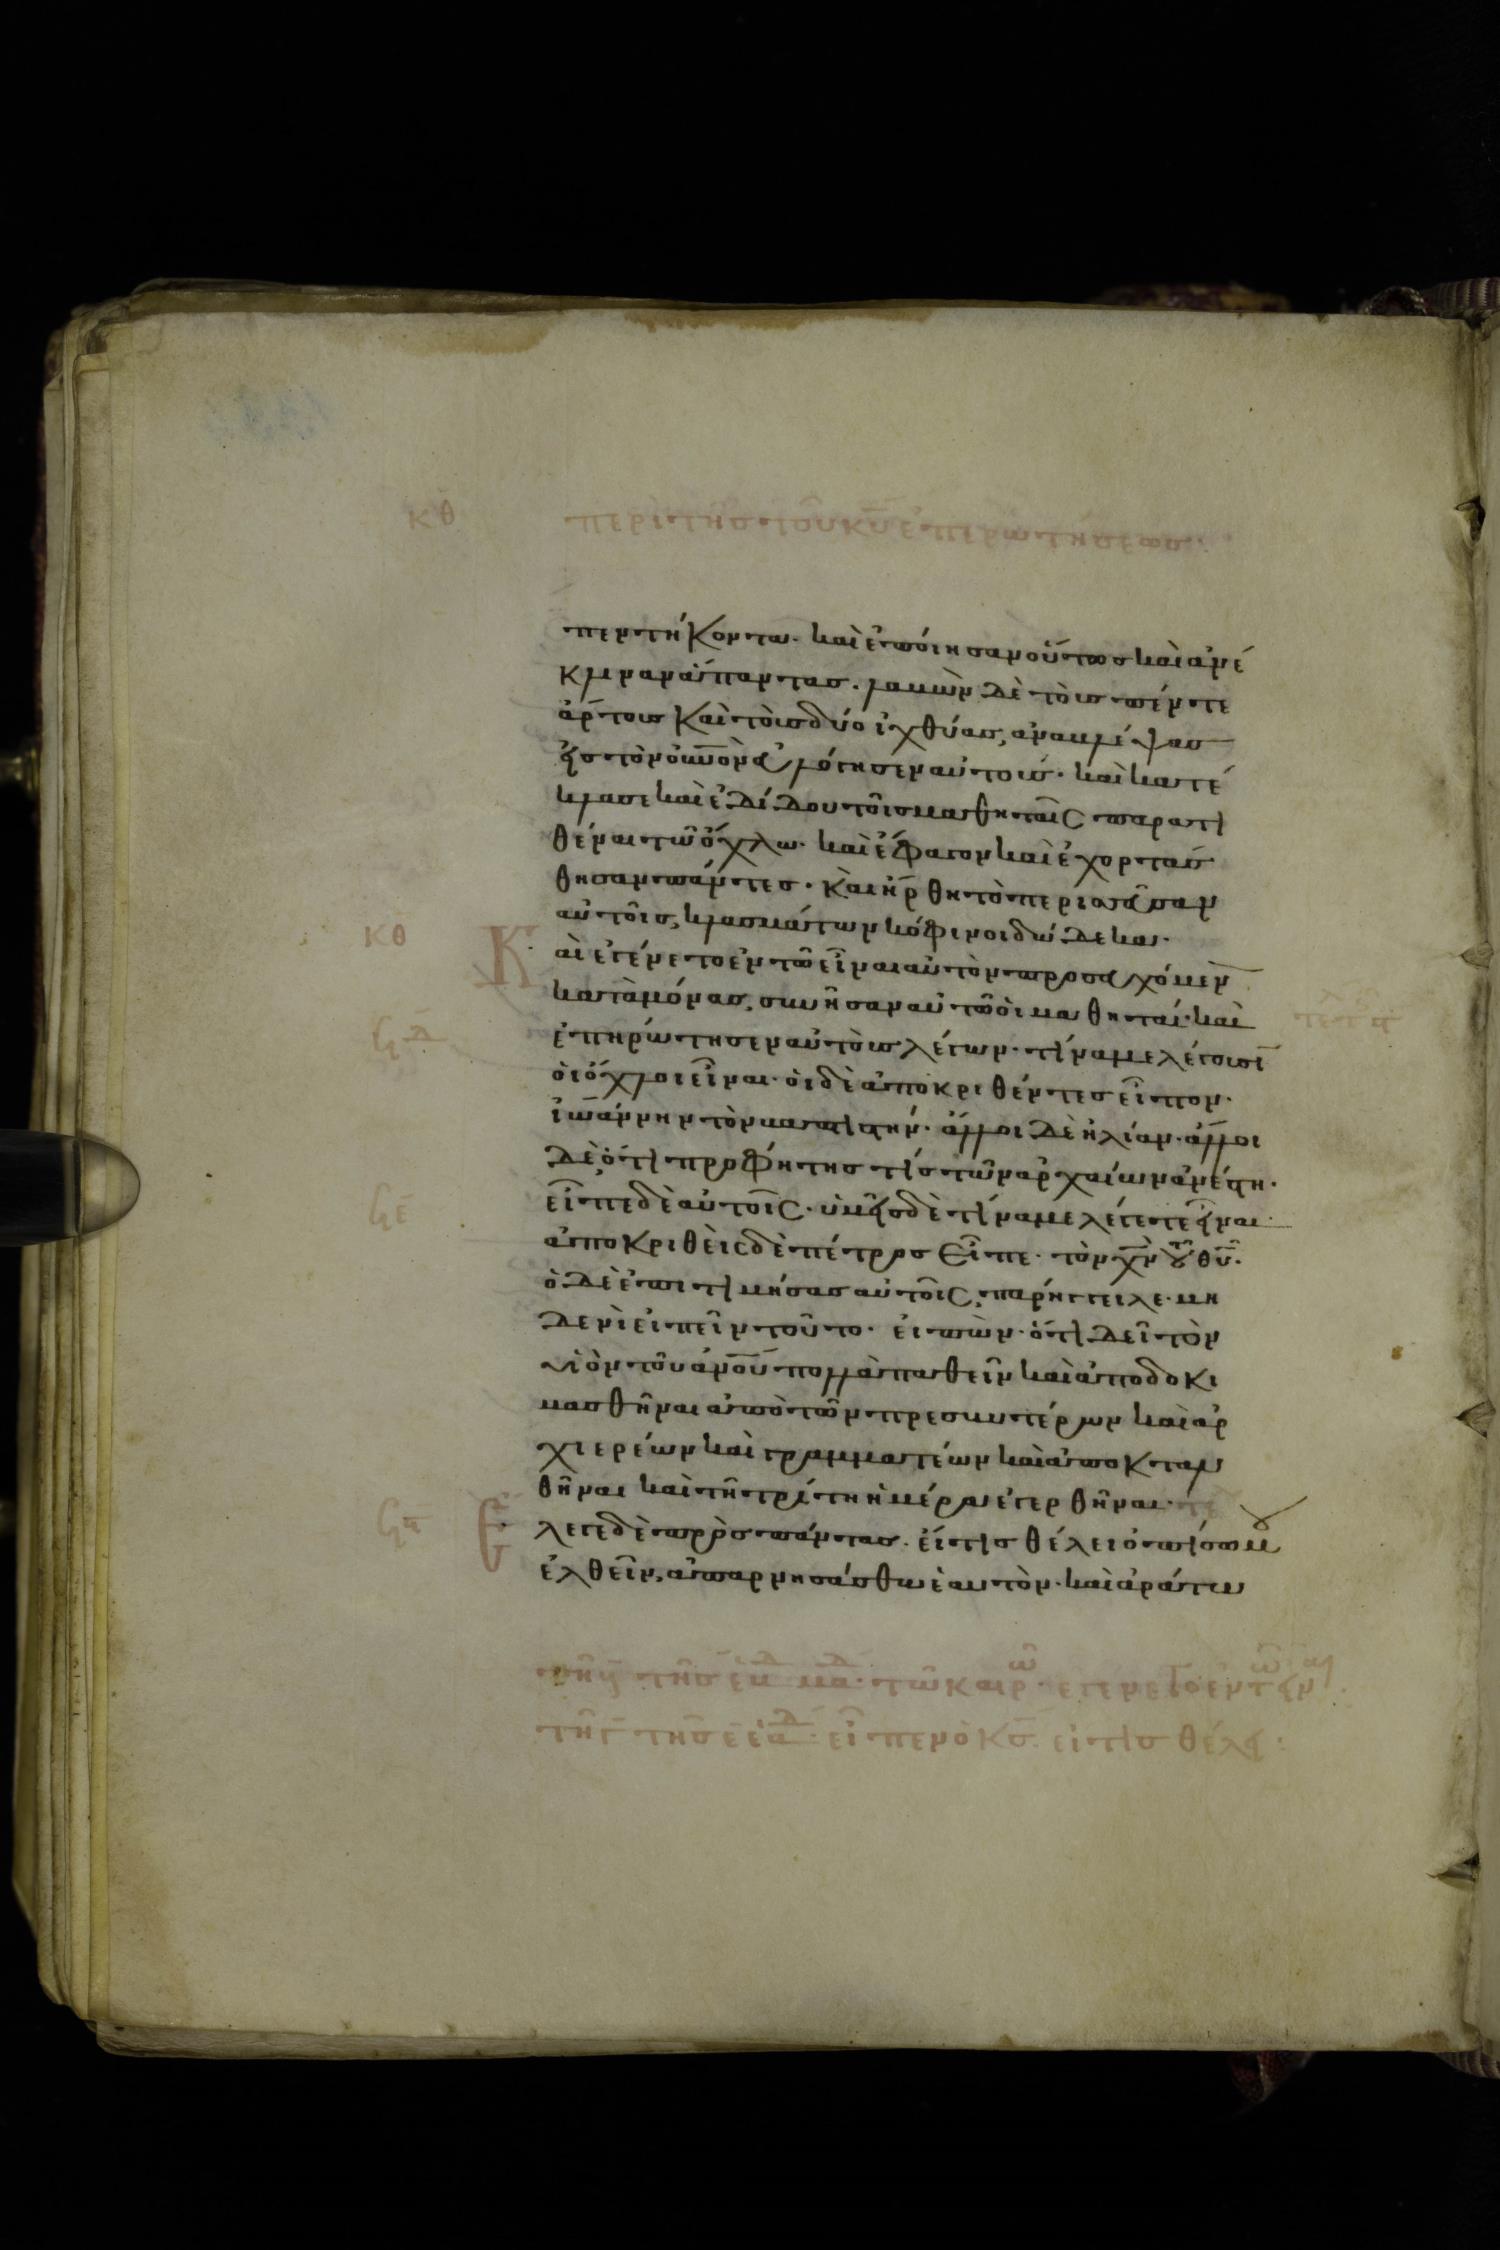 κθ περὶ τῆς τοῦ κ̅υ̅ ἐπερωτήσεως
πεντήκοντα· καὶ ἐποίησαν οὕτως καὶ ἀνέ
κλιναν ἅπαντας· λαβὼν δὲ τοὺς πέντε
ἄρτους καὶ τοὺς δύο ἰχθύας, ἀναβλέψας
εἰς τὸν ο̅υ̅νὸν εὐλόγησεν αὐτούς· καὶ κατέ
κλασε καὶ ἐδίδου τοῖς μαθηταῖς παρατι
θέναι τῶ ὄχλω· καὶ ἔφαγον καὶ ἐχορτάσ
θησαν πάντες· καὶ ἤρθη τὸ περισσεῦσαν
αὐτοῖς, κλασμάτων κόφινοι δώδεκα·
κθ Καὶ ἐγένετο ἐν τῶ εἶναι αὐτὸν προσευχόμεν
καταμόνας, συνῆσαν αὐτῶ οἱ μαθηταί· καὶ
ϟδ ἐπηρώτησεν αὐτοὺς λέγων· τίνα με λέγουσι
οἱ ὄχλοι εἶναι· οἱ δὲ ἀποκριθέντες εἶπον·
ἰω̅άννην τὸν βαπτιστήν· ἄλλοι δὲ ἠλίαν· ἄλλοι
δὲ, ὅτι προφήτης τίς τῶν ἀρχαίων ἀνέστη·
ϟε εἶπε δὲ αὐτοῖς· ὑμεῖς δὲ τίνα με λέγετε εἶναι·
ἀποκριθεὶς δὲ πέτρος εἶπε· τὸν χ̅ν̅ τοῦ θ̅υ̅·
ὁ δὲ ἐπιτιμήσας αὐτοῖς, παρήγγειλε· μη
δενὶ εἰπεῖν τοῦτο· εἰπὼν· ὅτι δεῖ τὸν
υἱὸν τοῦ ἀ̅ν̅ο̅υ̅ πολλὰ παθεῖν καὶ ἀποδοκι
μασθῆναι ἀπὸ τῶν πρεσβυτέρων καὶ ἀρ
χιερέων καὶ γραμματέων καὶ ἀποκταν
θῆναι καὶ τῆ τρίτη ἡμέρα ἐγερθῆναι·
ϟϛ Ἔλεγε δὲ πρὸς πάντας· εἴ τις θέλει ὀπίσω μου
ἐλθεῖν, ἀπαρνησάσθω ἑαυτὸν· καὶ ἀράτω
τῶ καιρῶ· ἐγένετο ἐν τῶ εἶναι
εἶπεν ὁ κ̅ς̅· εἴ τις θέλει